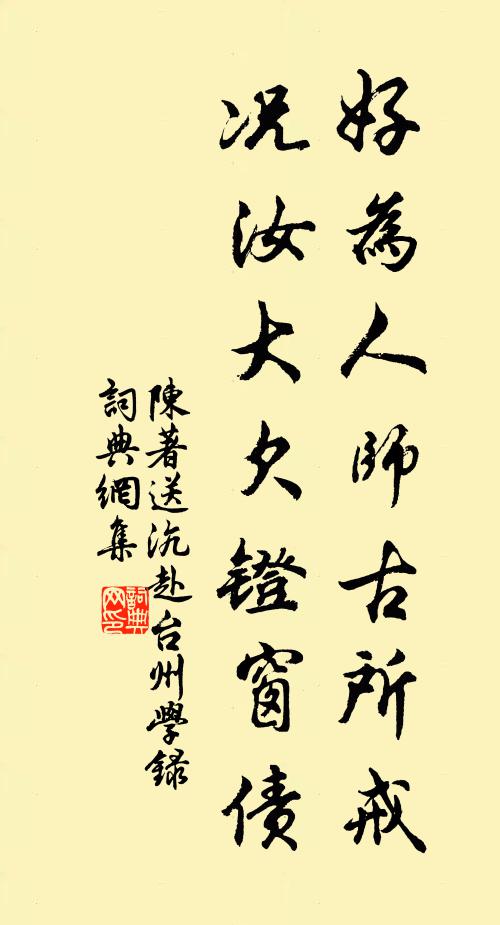 好為人師古所戒
況汝大欠鐙窗債
陳著送沆赴台州學録
詞典網集
詞典网印